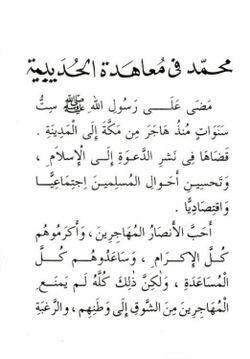 محمد في معاهدة الحديبية
مَضَى عَلَــى رَسُولِ اللهِ ﷺ سِتُّ
سَنَوَاتٍ مُنذُ هَاجَرَ مِن مَكَّةَ إِلَى المَدِينَةِ .
قَضَاهَا فِى نَشرِ الدَّعوَةِ إِلَــى الإِسلَامِ ،
وَتَحسِينِ أَحوَالِ المُسلِمِينَ اجتِمَاعِيًّــا
وَاقتِصَادِيًّا .
أَحَبَّ الأَنصَارُ المُهَاجِرِينَ ، وَأَكرَمُوهُم
كُـــلَّ الإِكـــرَامِ ، وَسَاعَدُوهُم كُـــلَّ
المُسَاعَدَةِ ، وَلٰكِنَّ ذٰلِكَ كُلَّهُ لَم يَمنَــعِ
المُهَاجِرِينَ مِنَ الشَّوقِ إِلَى وَطَنِهِم ، وَالرَّغبَةِ